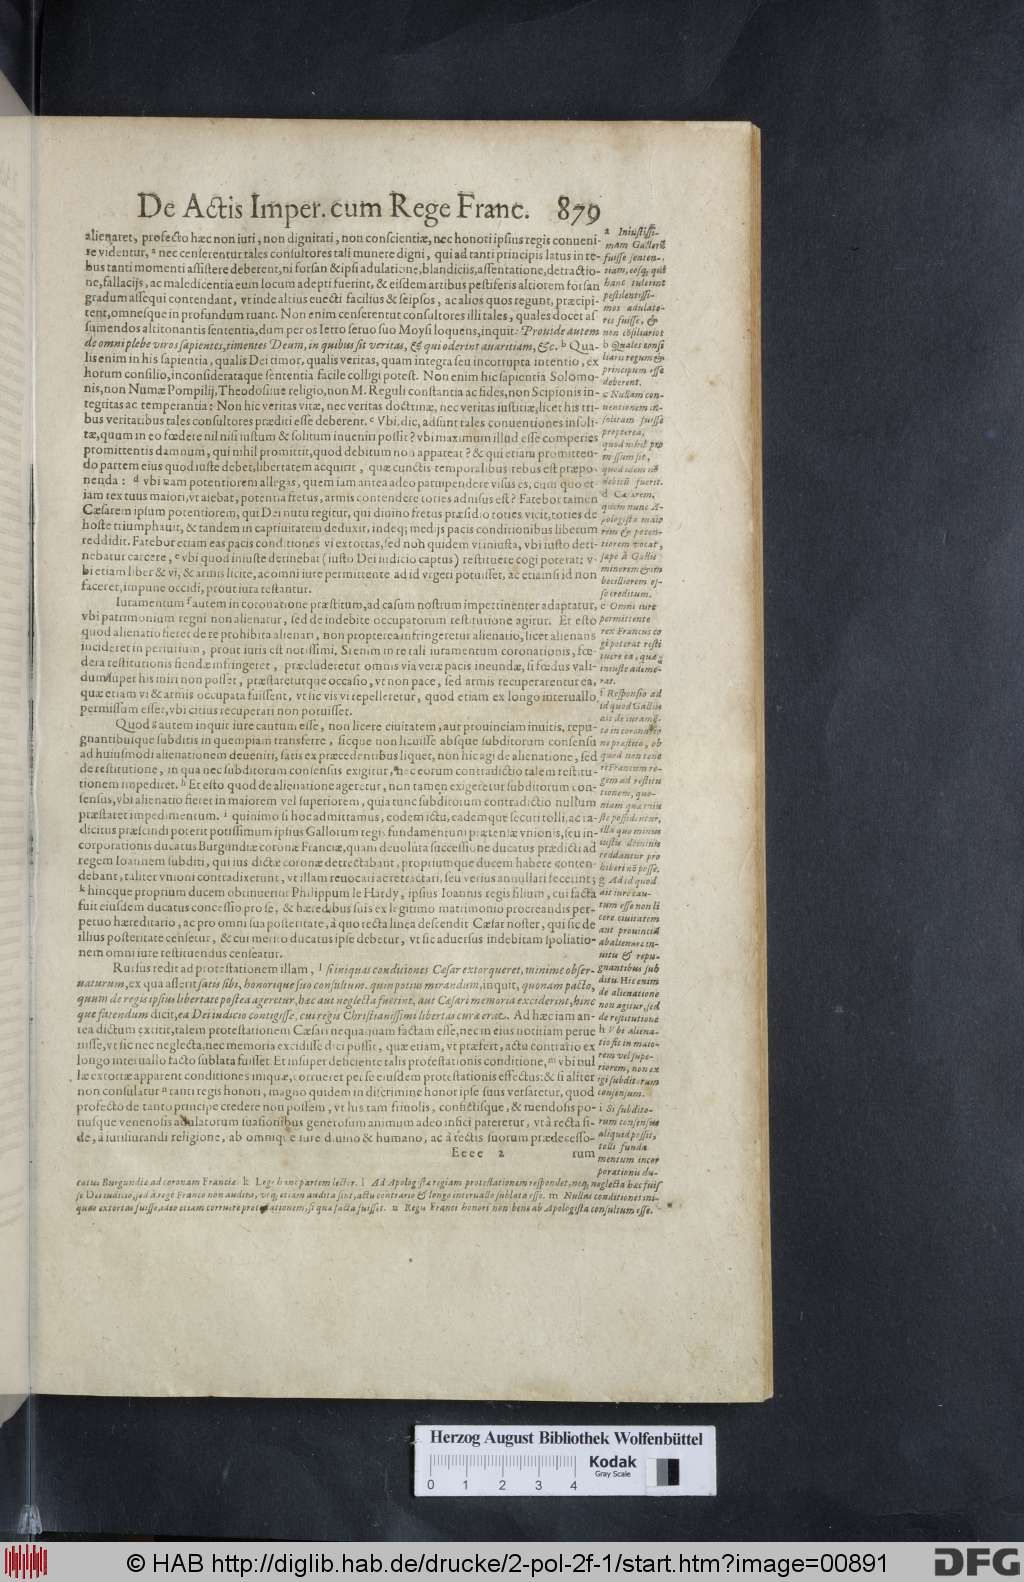 De Actis Imper. cum Rege Franc. 879
alienaret, profecto hæc non iuri, non dignitati, non conscientiæ, nec honori ipsius regis conueni-
re videntur, a nec censerentur tales consultores tali munere digni, qui ad tanti principis latus in re-
bus tanti momenti assistere deberent, ni forsan & ipsi adulatione, blandiciis, assentatione, detractio-
ne, fallacijs, ac maledicentia eum locum adepti fuerint, & eisdem artibus pestiferis altiorem forsan
gradum assequi contendant, vt inde altius euecti facilius & seipsos, ac alios quos regunt, præcipi-
tent, omnesque in profundum ruant. Non enim censerentur consultores illi tales, quales docet as
sumendos altitonantis sententia, dum per os Ietro seruo suo Moysi loquens, inquit: Prouide autem
de omni plebe viros sapientes, timentes Deum, in quibus sit veritas, & qui oderint auaritiam, &c. b Qua-
lis enim in his sapientia, qualis Dei timor, qualis veritas, quam integra seu incorrupta intentio, ex
horum consilio, inconsiderataque sententia facile colligi potest. Non enim hic sapientia Solomo-
nis, non Numæ Pompilij, Theodosiiue religio, non M. Reguli constantia ac fides, non Scipionis in-
tegritas ac temperantia: Non hic veritas vitæ, nec veritas doctrinæ, nec veritas iustitiæ, licet his tri-
bus veritatibus tales consultores præditi esse deberent. c Vbi. dic, adsunt tales conuentiones insoli-
tæ, quum in eo fœdere nil nisi iustum & solitum inueniri possit? vbi maximum illud esse comperies
promittentis damnum, qui nihil promittit, quod debitum non appareat? & qui etiam promitten-
do partem eius quod iuste debet, libertatem acquirit, quæ cunctis temporalibus rebus est præpo-
nenda: d vbi nam potentiorem allegas, quem iam antea adeo paruipendere visus es, cum quo et-
iam rex tuus maiori, vt aiebat, potentia fretus, armis contendere toties adnisus est? Fatebor tamen
Cæsarem ipsum potentiorem, qui Dei nutu regitur, qui diuino fretus præsidio toties vicit, toties de
hoste triumphauit, & tandem in captiuitatem deduxit, indeq; medijs pacis conditionibus liberum
reddidit. Fatebor etiam eas pacis conditiones vi extortas, sed non quidem vi iniusta, vbi iusto deti-
nebatur carcere, e vbi quod iniuste detinebat (iusto Dei iudicio captus) restituere cogi poterat: v-
bi etiam liber & vi, & armis licite, ac omni iure permittente ad id vrgeri potuisset, ac etiam si id non
faceret, impune occidi, prout iura testantur.
Iuramentum f autem in coronatione præstitum, ad casum nostrum impertinenter adaptatur,
vbi patrimonium regni non alienatur, sed de indebite occupatorum restitutione agitur. Et esto
quod alienatio fieret de re prohibita alienari, non propterea infringeretur alienatio, licet alienans
incideret in periurium, prout iuris est notissimi. Si enim in re tali iuramentum coronationis, fœ-
dera restitutionis fiendæ infringeret, præcluderetur omnis via veræ pacis ineundæ, si fœdus vali-
dum super his iniri non posset, præstareturque occasio, vt non pace, sed armis recuperarentur ea,
quæ etiam vi & armis occupata fuissent, vt sic vis vi repelleretur, quod etiam ex longo interuallo
permissum esset, vbi citius recuperari non potuisset.
Quod g autem inquit iure cautum esse, non licere ciuitatem, aut prouinciam inuitis, repu-
gnantibusque subditis in quempiam transferre, sicque non licuisse absque subditorum consensu
ad huiusmodi alienationem deueniri, satis ex præcedentibus liquet, non hic agi de alienatione, sed
de restitutione, in qua nec subditorum consensus exigitur, nec eorum contradictio talem restitu-
tionem impediret. h Et esto quod de alienatione ageretur, non tamen exigeretur subditorum con-
sensus, vbi alienatio fieret in maiorem vel superiorem, quia tunc subditorum contradictio nullum
præstaret impedimentum. i quinimo si hoc admittamus, eodem ictu, eademque securi tolli, ac ra-
dicitus præscindi poterit potissimum ipsius Gallorum regis fundamentum prætensæ vnionis, seu in-
corporationis ducatus Burgundiæ coronæ Franciæ, quam deuoluta successione ducatus prædicti ad
regem Ioannem subditi, qui ius dictæ coronæ detrectabant, propriumque ducem habere conten-
debant, taliter vnioni contradixerunt, vt illam reuocari ac retractari, seu verius annullari fecerint;
k hincque proprium ducem obtinuerint Philippum le Hardy, ipsius Ioannis regis filium, cui facta
fuit eiusdem ducatus concessio pro se, & hæredibus suis ex legitimo matrimonio procreandis per-
petuo hæreditario, ac pro omni sua posteritate, à quo recta linea descendit Cæsar noster, qui sic de
illius posteritate censetur, & cui merito ducatus ipse debetur, vt sic aduersus indebitam spoliatio-
nem omni iure restituendus censeatur.
Rursus redit ad protestationem illam, l si iniquas conditiones Cæsar extorqueret, minime obser-
uaturum, ex qua asserit satis sibi, honorique suo consultum. quin potius mirandum, inquit, quonam pacto,
quum de regis ipsius libertate postea ageretur, hæc aut neglecta fuerint, aut Cæsari memoria exciderint, hinc
que ferendum dicit, ea Dei iudicio contigisse, cui regis Christianissimi libertas curæ erat. Ad hæc iam an-
tea dictum extitit, talem protestationem Cæsari nequaquam factam esse, nec in eius notitiam perue
nisse, vt sic nec neglecta, nec memoria excidisse dici possit, quæ etiam, vt præfert, actu contrario ex
longo interuallo facto sublata fuisset. Et insuper deficiente talis protestationis conditione, m vbi nul
læ extortæ apparent conditiones iniquæ, corrueret per se eiusdem protestationis effectus: & si aliter
non consulatur n tanti regis honori, magno quidem in discrimine honor ipse suus versaretur, quod
profecto de tanto principe credere non possem, vt his tam friuolis, confictisque, & mendosis po-
tiusque venenosis adulatorum suasionibus generosum animum adeo infici pateretur, vt à recta fi-
de, à iurisiurandi religione, ab omnique iure diuino & humano, ac à rectis suorum prædecesso-
Eeee 2 rum
a Iniustissi-
mam Gallorū
fuisse senten-
tiam, eosq; qui
hanc tulerint
pestilentissi-
mos adulato-
res fuisse, &
non cōsiliarios
b Quales consi
liarii regum &
principum esse
deberent.
c Nullam con-
uentionem in-
solitam fuisse
propterea,
quod nihil pro
missum sit,
quod idem nō
debitū fuerit.
d Cæsarem,
quem nunc A-
pologista maio
rem & poten-
tiorem vocat,
sæpe à Gallis
minorem & im
becilliorem es-
se creditum.
e Omni iure
permittente
rex Francus co
gi poterat resti
tuere ea, quæ
iniuste ademe-
rat.
f Responsio ad
id quod Gallus
ait de iuramē-
to in coronatio
ne præstito, ob
quod non tene
ri Francum re-
gem ad restitu
tionem, quo-
niam quæ iniu
ste possidentur,
illa quo minus
iustis dominis
reddantur pro
hiberi nō posse.
g Ad id quod
ait iure cau-
tum esse non li
cere ciuitatem
aut prouinciā
abalienare in-
uitis & repu-
gnantibus sub
ditis. Hic enim
de alienatione
non agitur, sed
de restitutione
h Vbi aliena-
tio fit in maio-
rem vel supe-
riorem, non ex
igi subditorum
consensum.
i Si subdito-
rum consensus
aliquid possit,
tolli funda
mentum incor
porationis du-
catus Burgundiæ ad coronam Franciæ k Lege hanc partem lector. l Ad Apologistæ regiam protestationem respondet, neq; neglecta hæc fuis
se Dei iudicio, sed à rege Franco non audita, vtq; etiam audita sint, actu contrario & longo interuallo sublata esse. m Nullas conditiones ini-
quas extortas fuisse, ideo etiam corruere protestationem, si qua facta fuisset. n Regis Franci honori non bene ab Apologista consultum esse.
Herzog August Bibliothek Wolfenbüttel
Kodak
Gray Scale
0 1 2 3 4
© HAB http://diglib.hab.de/drucke/2-pol-2f-1/start.htm?image=00891
DFG